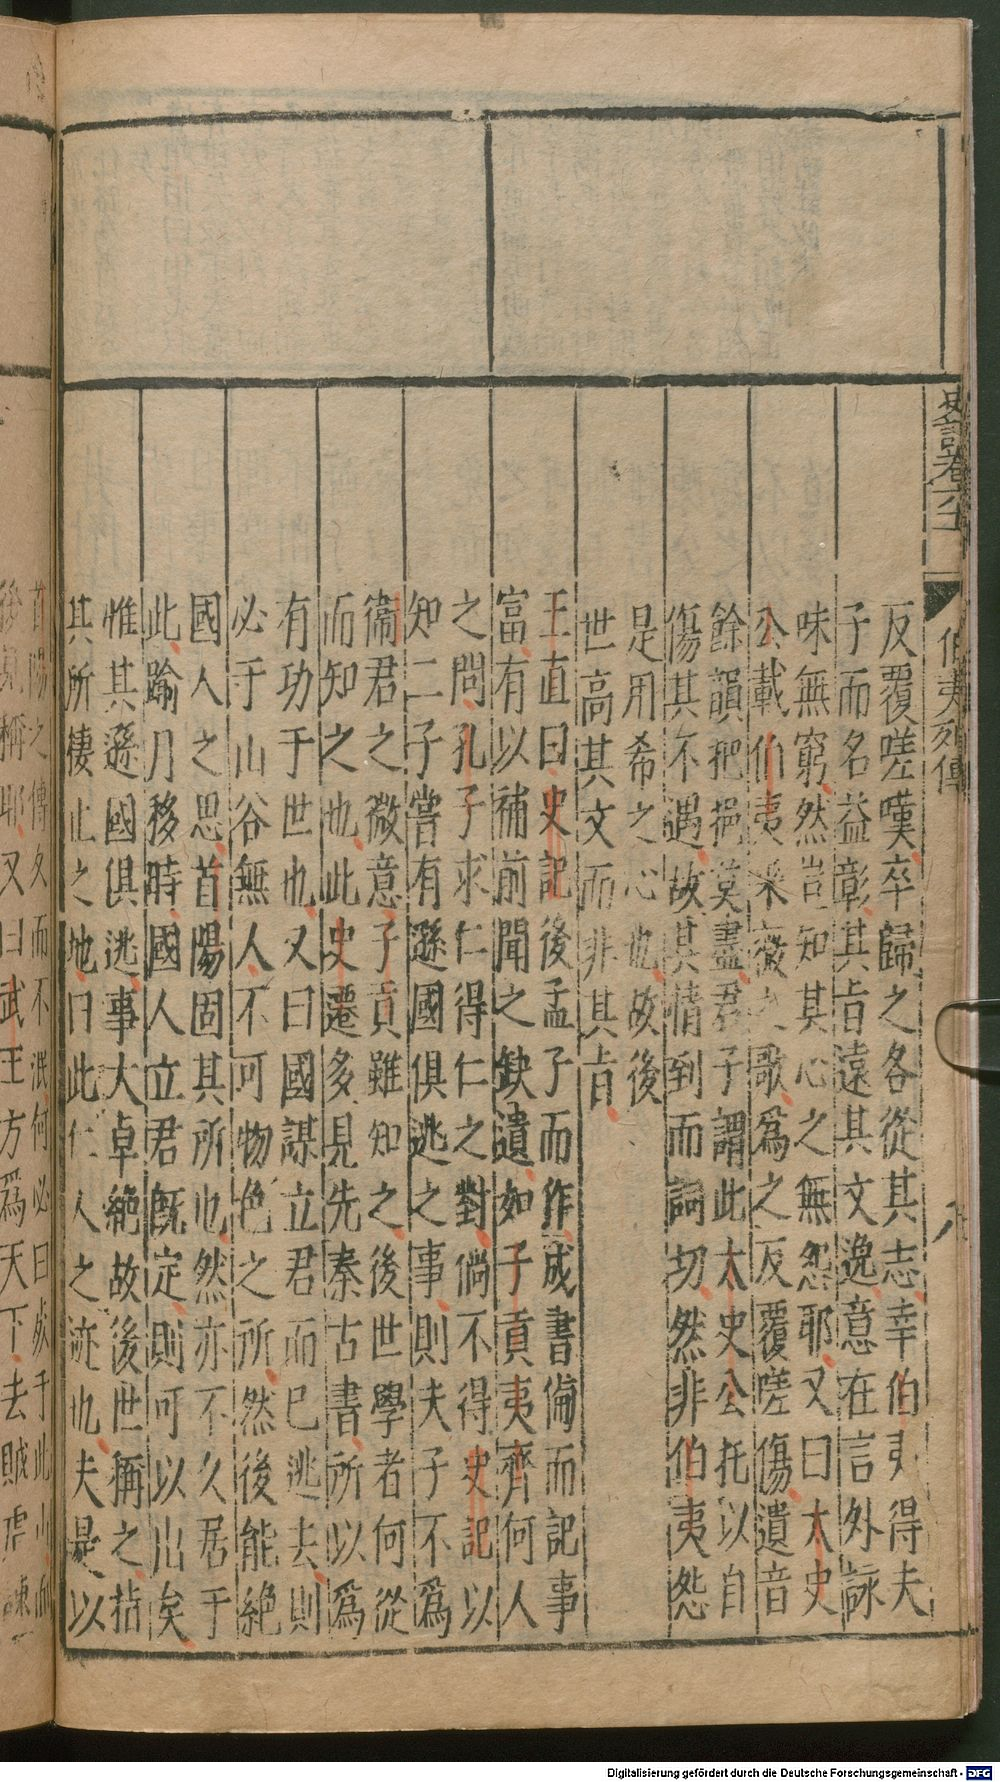 史記卷六十一
伯夷列傳
八
反覆嗟嘆卒歸之各從其志幸伯夷得夫
子而名益彰其旨遠其文逸意在言外詠
味無窮然豈知其心之無怨耶又曰太史
公載伯夷采薇之歌爲之反覆嗟傷遺音
餘韻把挹莫盡君子謂此太史公托以自
傷其不遇故其情到而詞切然非伯夷怨
是用希之心也故後
世高其文而非其旨
王直曰史記後孟子而作成書備而記事
富有以補前聞之缺遺如子貢夷齊何人
之問孔子求仁得仁之對倘不得史記以
知二子嘗有遜國俱逃之事則夫子不爲
衞君之微意子貢雖知之後世學者何從
而知之也此史遷多見先秦古書所以爲
有功于世也又曰國謀立君而已逃去則
必于山谷無人不可物色之所然後能絕
國人之思首陽固其所也然亦不久居于
此踰月移時國人立君旣定則可以出矣
惟其遜國俱逃事大卓絕故後世稱之指
其所棲止之地曰此仁人之迹也夫是以
首陽之傳久而不泯何必曰歿于此山
後氣稱耶又曰武王方爲天下去賊虐諫
Digitalisierung gefördert durch die Deutsche Forschungsgemeinschaft - DFG